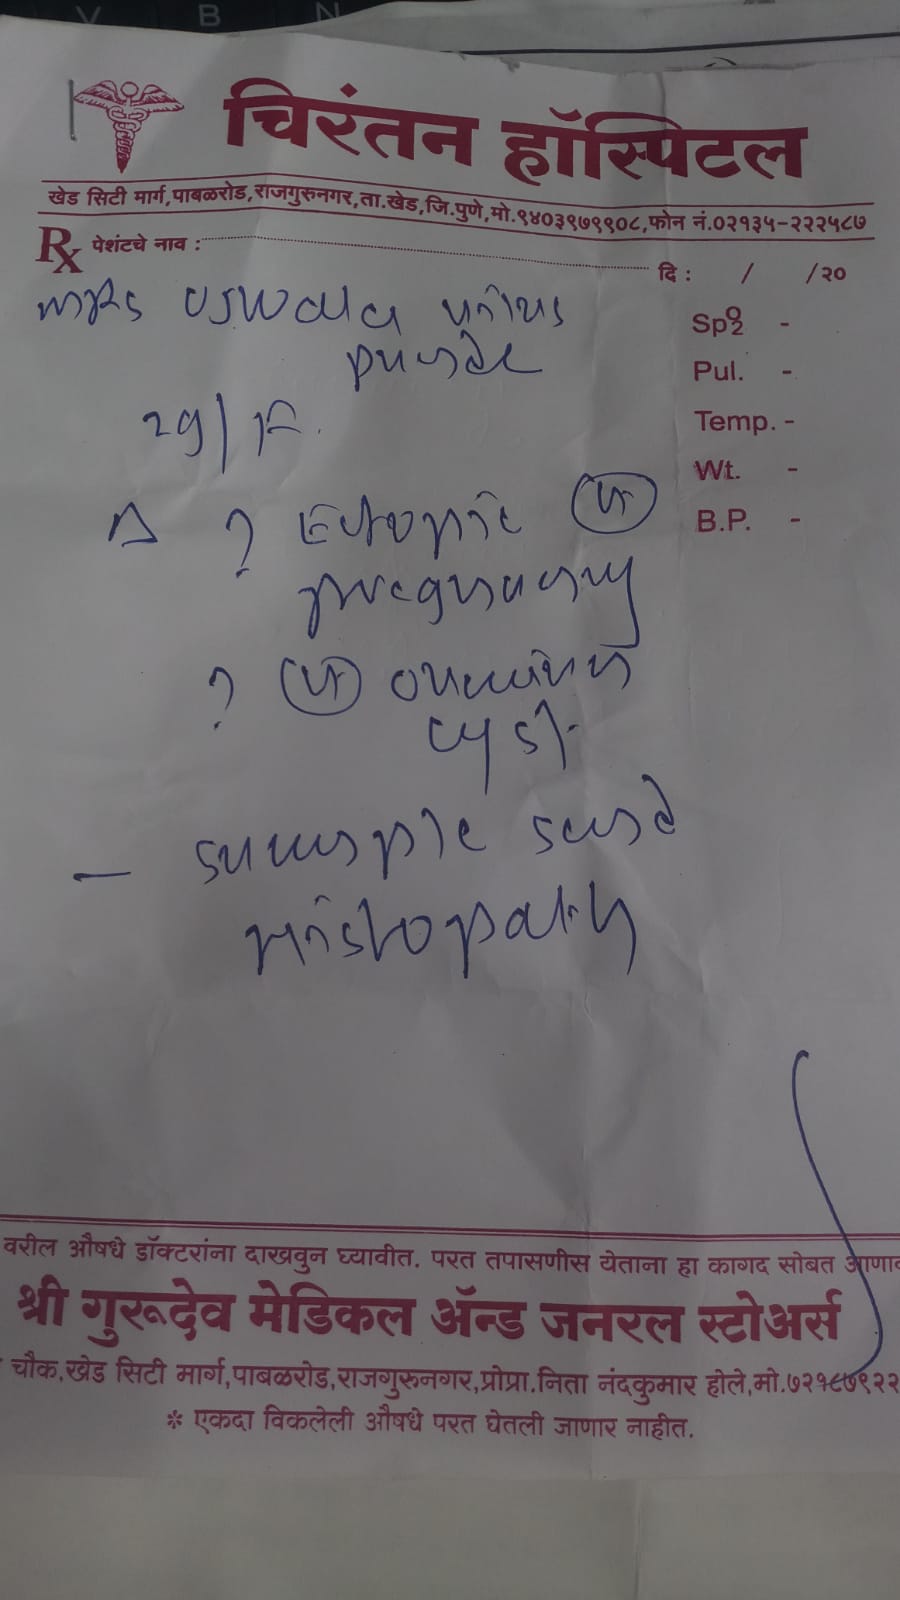 V B N
चिरंतन हॉस्पिटल
खेड सिटी मार्ग,पाबळरोड,राजगुरुनगर,ता.खेड,जि.पुणे,मो.९४०३९७९९०८,फोन नं.०२१३५-२२२५८७
Rx पेशंटचे नाव :
दि : / /२०
Mrs
29/F.
Spo2 -
Pul. -
Temp. -
Wt. -
B.P. -
Δ ? Ectopic
pregnancy
? ovarian
cyst
- sample send
Histopath
वरील औषधे डॉक्टरांना दाखवुन घ्यावीत. परत तपासणीस येताना हा कागद सोबत
श्री गुरूदेव मेडिकल ॲन्ड जनरल स्टोअर्स
चौक,खेड सिटी मार्ग,पाबळरोड,राजगुरुनगर,प्रोप्रा.निता नंदकुमार होले,मो.
* एकदा विकलेली औषधे परत घेतली जाणार नाहीत.